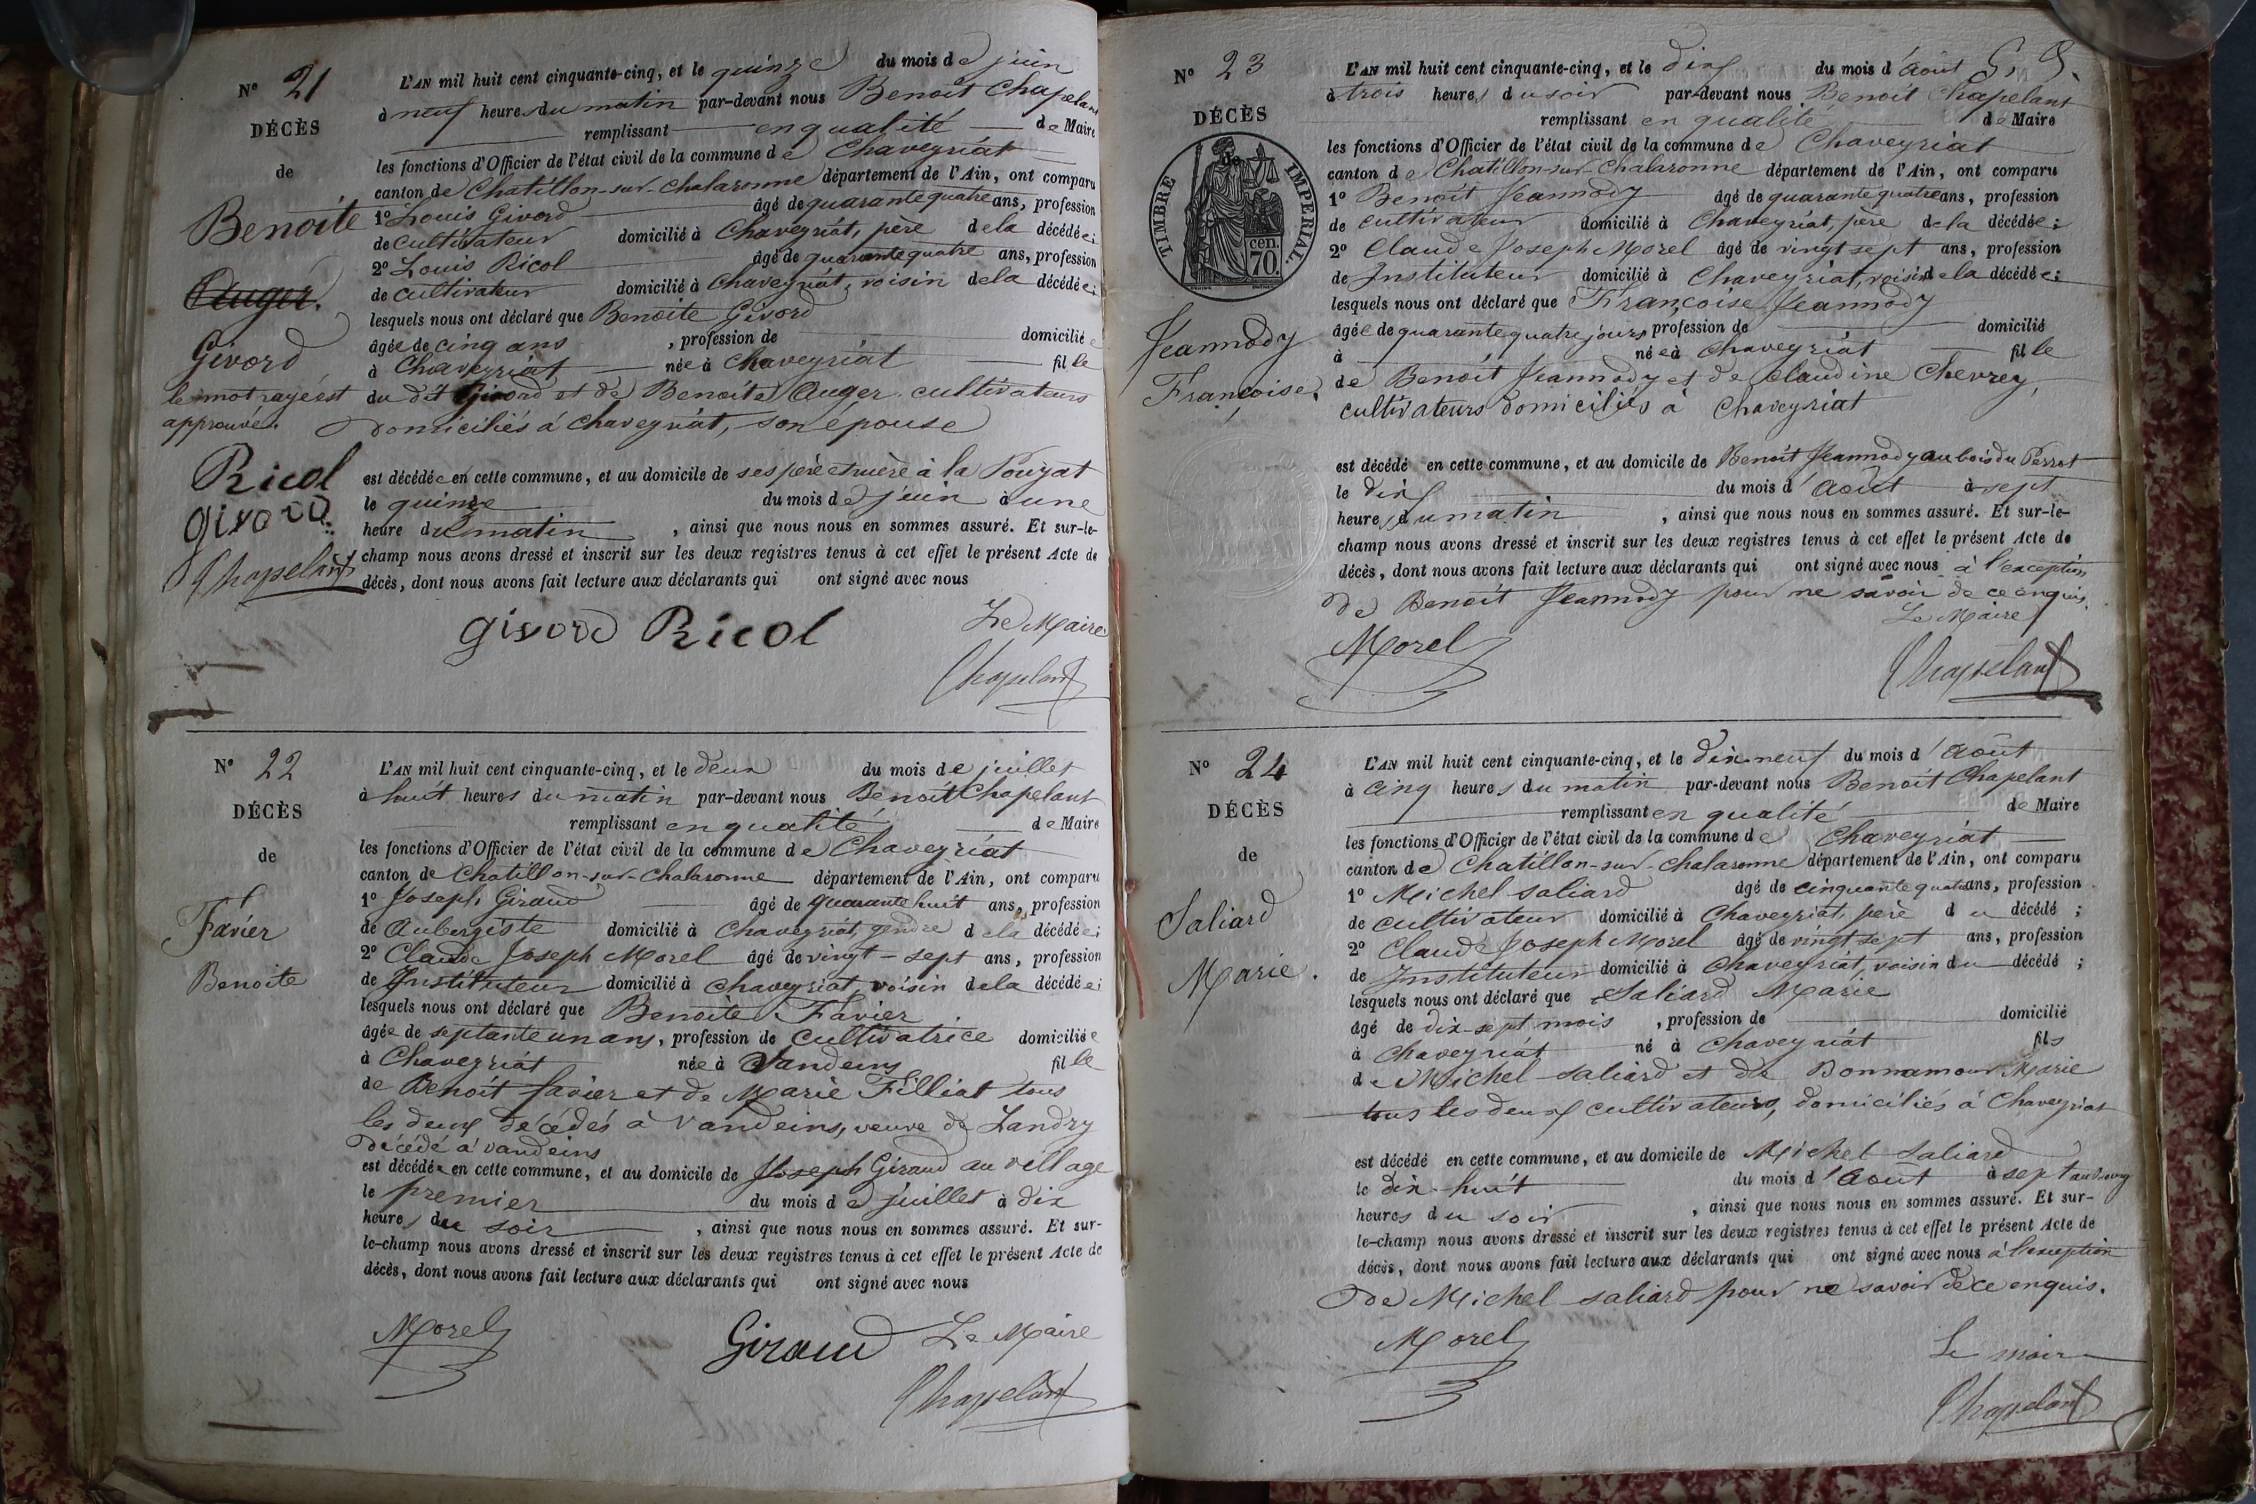 N° 21
DÉCÈS
de
Benoîte
Auger.
Givord
le mot rayé est
approuvé.
Ricol
givord
Chapelant
L'AN mil huit cent cinquante-cinq, et le quinze du mois de juin
à neuf heures du matin par-devant nous Benoît Chapelant
remplissant en qualité de Maire
les fonctions d'Officier de l'état civil de la commune de Chaveyriat
canton de Chatillon-sur-Chalaronne département de l'Ain, ont comparu
1° Louis Givord âgé de quarante quatre ans, profession
de cultivateur domicilié à Chaveyriat, père de la décédée;
2° Louis Ricol âgé de quarante quatre ans, profession
de cultivateur domicilié à Chaveyriat, voisin de la décédée;
lesquels nous ont déclaré que Benoite Givord
âgée de cinq ans , profession de domiciliée
à Chaveyriat née à Chaveyriat fille
du dit Givord et de Benoite Auger cultivateurs
domiciliés à Chaveyriat, son épouse
est décédée en cette commune, et au domicile de ses père et mère à la Pouyat
le quinze du mois de juin à une
heure du matin , ainsi que nous nous en sommes assuré. Et sur-le-
champ nous avons dressé et inscrit sur les deux registres tenus à cet effet le présent Acte de
décès, dont nous avons fait lecture aux déclarants qui ont signé avec nous
givord Ricol
Le Maire
Chapelant
N° 22
DÉCÈS
de
Favier
Benoite
L'AN mil huit cent cinquante-cinq, et le deux du mois de juillet
à huit heures du matin par-devant nous Benoit Chapelant
remplissant en qualité de Maire
les fonctions d'Officier de l'état civil de la commune de Chaveyriat
canton de Chatillon-sur-Chalaronne département de l'Ain, ont comparu
1° Joseph Giraud âgé de quarante huit ans, profession
de Aubergiste domicilié à Chaveyriat, gendre de la décédée;
2° Claude Joseph Morel âgé de vingt-sept ans, profession
de Instituteur domicilié à Chaveyriat, voisin de la décédée;
lesquels nous ont déclaré que Benoite Favier
âgée de septante un ans, profession de Cultivatrice domiciliée
à Chaveyriat née à Vandeins fille
de Benoit favier et de Marie Filliat tous
les deux décédés à Vandeins, veuve de Landry
décédé à Vandeins
est décédée en cette commune, et au domicile de Joseph Giraud au village
le premier du mois de juillet à dix
heures du soir , ainsi que nous nous en sommes assuré. Et sur-
le-champ nous avons dressé et inscrit sur les deux registres tenus à cet effet le présent Acte de
décès, dont nous avons fait lecture aux déclarants qui ont signé avec nous
Morel Giraud Le Maire
Chapelant
N° 23
DÉCÈS
de
TIMBRE IMPERIAL.
70 cen.
Jeannody
Françoise.
L'AN mil huit cent cinquante-cinq, et le dix du mois d'Août
à trois heures du soir par-devant nous Benoit Chapelant
remplissant en qualité de Maire
les fonctions d'Officier de l'état civil de la commune de Chaveyriat
canton de Chatillon-sur-Chalaronne département de l'Ain, ont comparu
1° Benoît Jeannody âgé de quarante quatre ans, profession
de cultivateur domicilié à Chaveyriat, père de la décédée;
2° Claude Joseph Morel âgé de vingt sept ans, profession
de Instituteur domicilié à Chaveyriat, voisin de la décédée;
lesquels nous ont déclaré que Françoise Jeannody
âgée de quarante quatre jours profession de domicilié
à née à Chaveyriat fille
de Benoit Jeannody et de Claudine Chevrey,
cultivateurs domiciliés à Chaveyriat
est décédé en cette commune, et au domicile de Benoit Jeannody au bois du Perrot
le dix du mois d'Août à sept
heures du matin , ainsi que nous nous en sommes assuré. Et sur-le-
champ nous avons dressé et inscrit sur les deux registres tenus à cet effet le présent Acte de
décès, dont nous avons fait lecture aux déclarants qui ont signé avec nous à l'exception
de Benoit Jeannody pour ne savoir de ce enquis.
Le Maire
Morel
Chapelant
N° 24
DÉCÈS
de
Saliard
Marie.
L'AN mil huit cent cinquante-cinq, et le dix-neuf du mois d'Août
à cinq heures du matin par-devant nous Benoit Chapelant
remplissant en qualité de Maire
les fonctions d'Officier de l'état civil de la commune de Chaveyriat
canton de Chatillon-sur-Chalaronne département de l'Ain, ont comparu
1° Michel Saliard âgé de cinquante quatre ans, profession
de cultivateur domicilié à Chaveyriat, père du décédé;
2° Claude Joseph Morel âgé de vingt sept ans, profession
de Instituteur domicilié à Chaveyriat, voisin du décédé;
lesquels nous ont déclaré que Saliard Marie
âgé de dix-sept mois , profession de domicilié
à Chaveyriat né à Chaveyriat fils
de Michel Saliard et de Bonnamour Marie
tous les deux cultivateurs, domiciliés à Chaveyriat
est décédé en cette commune, et au domicile de Michel Saliard
le dix-huit du mois d'Août à sept
heures du soir , ainsi que nous nous en sommes assuré. Et sur-
le-champ nous avons dressé et inscrit sur les deux registres tenus à cet effet le présent Acte de
décès, dont nous avons fait lecture aux déclarants qui ont signé avec nous à l'exception
de Michel Saliard pour ne savoir de ce enquis.
Morel
Le maire
Chapelant